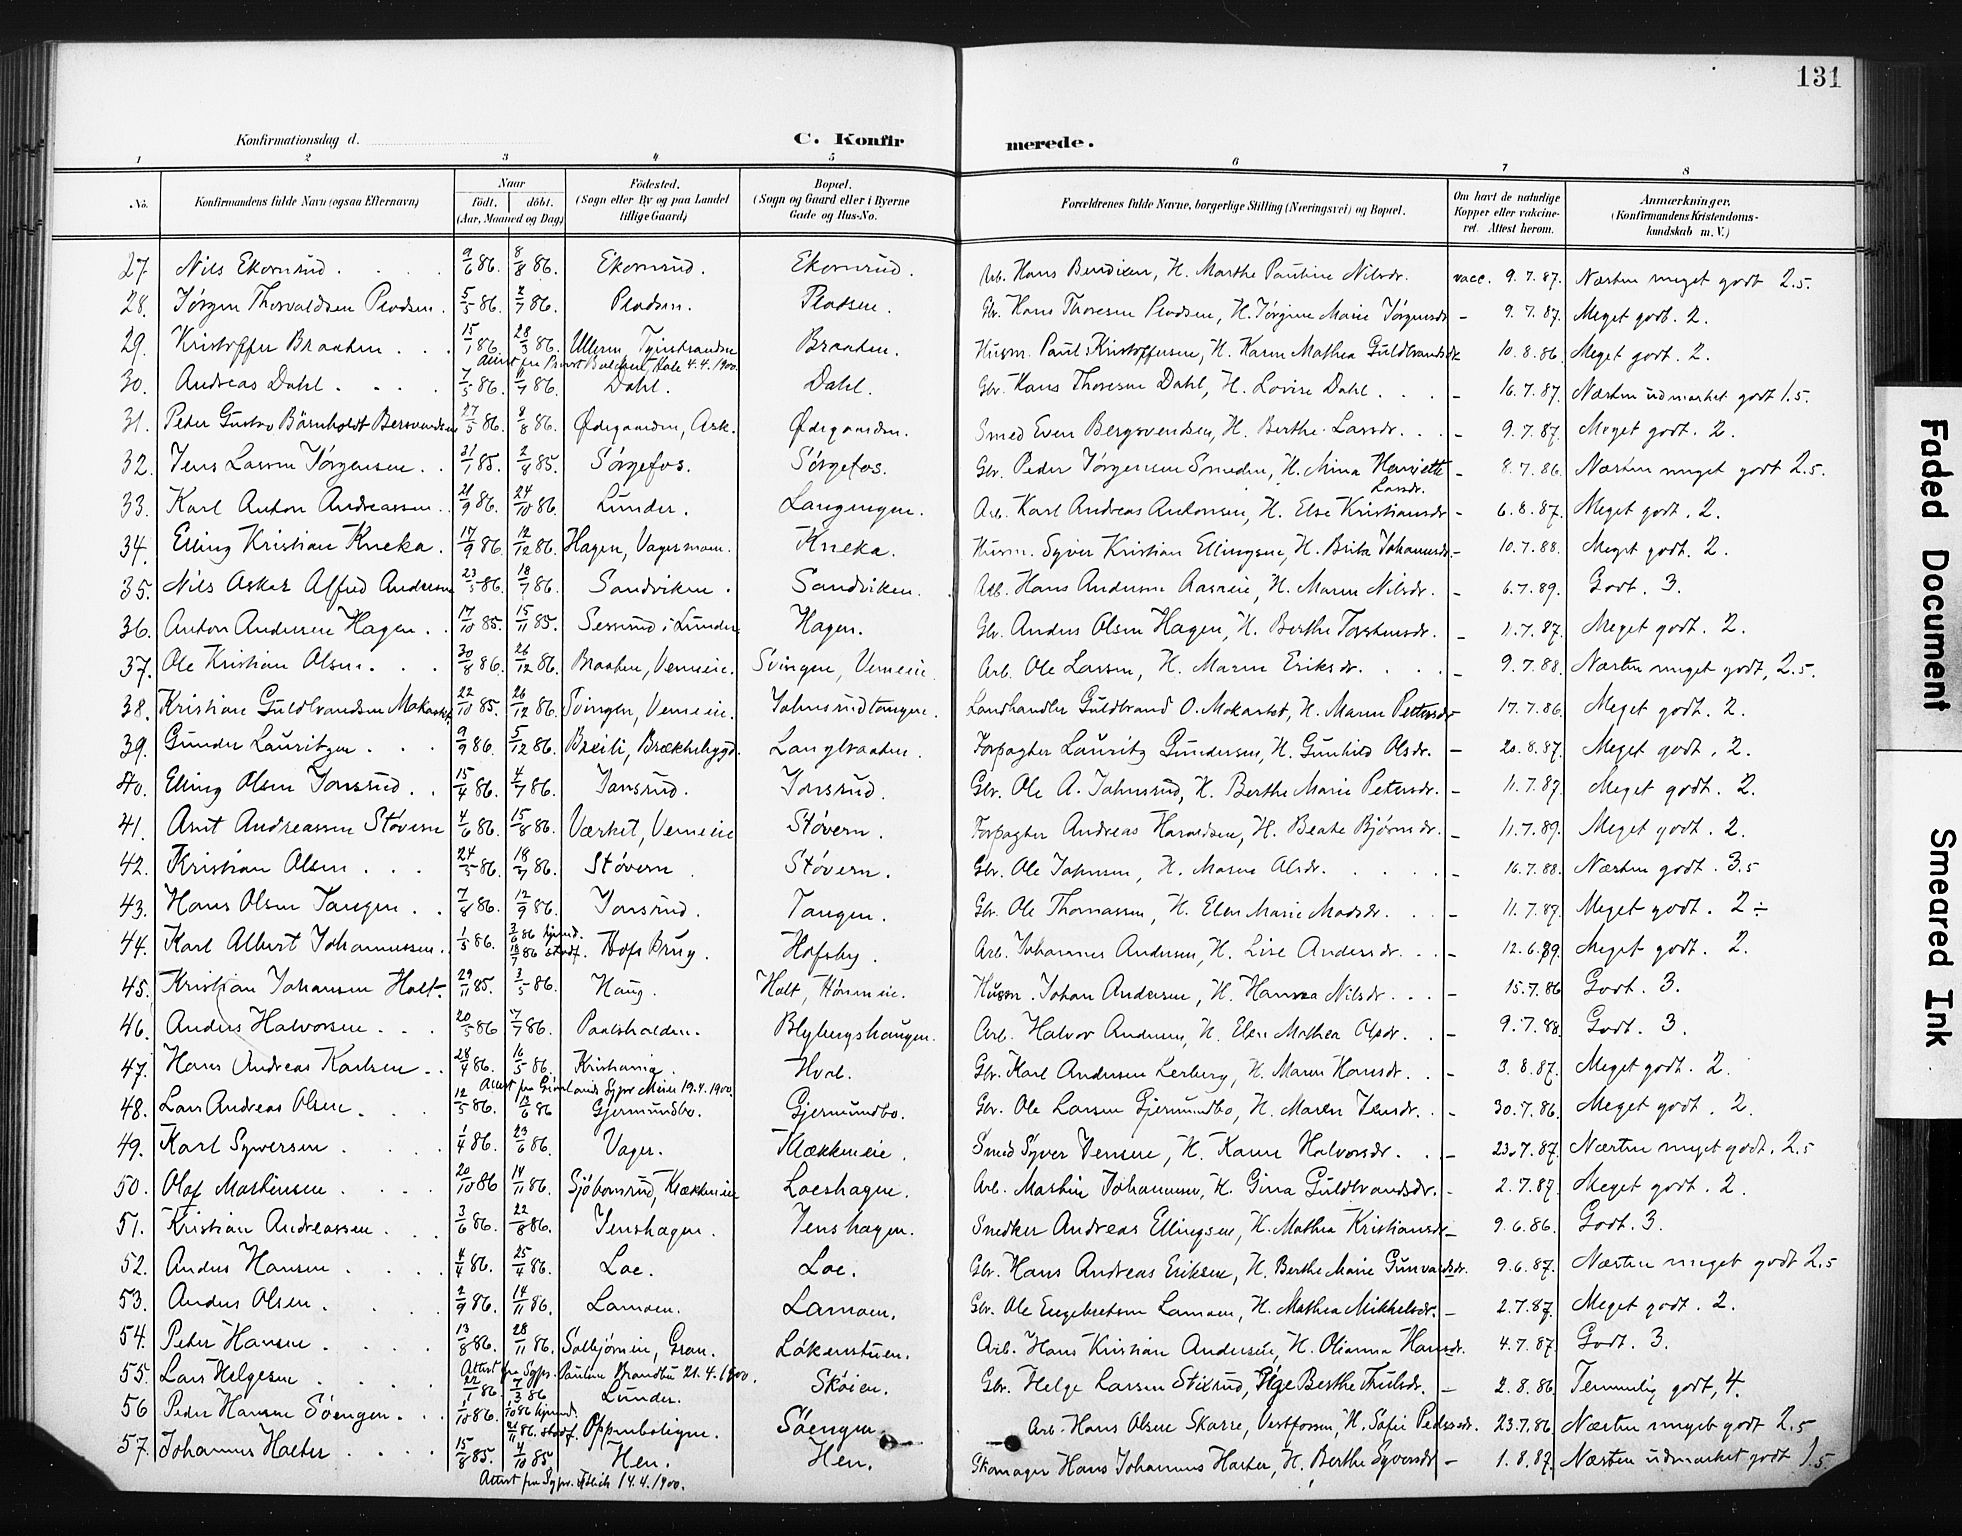 131
Konfirmationsdag d.
C. Konfirmerede.
1 2 3 4 5 6 7 8
No. Konfirmandens fulde Navn (ogsaa Efternavn) Naar født. døbt. (Aar, Maaned og Dag) Fødested. (Sogn eller By og paa Landet tillige Gaard) Bopæl. (Sogn og Gaard eller i Byerne Gade og Hus-No. Forældrenes fulde Navne, borgerlige Stilling (Næringsvei) og Bopæl. Om havt de naturlige Kopper eller vakcineret. Attest herom. Anmærkninger. (Konfirmandens Kristendomskundskab m. V.)
27. Nils Ekornrud. 9/6 86. 8/8 86. Ekornrud. Ekornrud. Arb. Hans Bendixen, H. Marthe Pauline Nilsdr. vacc. 9.7.87. Næsten meget godt 2.5.
28. Jørgen Thorvaldsen Pladsen. 5/5 86. 4/7 86. Pladsen. Pladsen. Gbr. Hans Thoresen Pladsen, H. Jørgine Marie Jørgensdr. – 9.7.87. Meget godt. 2.
29. Kristoffer Braaten. 15/1 86. 28/3 86. Ullern Tyristranden Braaten. Husm. Paul Kristoffersen, H. Karen Mathea Guldbrandsdr. 10.8.86. Meget godt. 2.
Attest fra Hole 4.4.1900.
30. Andreas Dahl. 7/5 86. 11/7 86. Dahl. Dahl. Gbr. Hans Thoresen Dahl, H. Lovise Dahl. – 16.7.87. Næsten udmærket godt 1.5.
31. Peder Gustav Börnholdt Bersvendsen 27/5 86. 8/8 86. Ødegaarden, Ask. Ødegaarden. Smed Even Bergsvendsen, H. Berthe Larsdr. – 9.7.87. Meget godt. 2.
32. Jens Larsen Jörgensen. 31/1 85. 2/4 85. Sörgefos. Sörgefos. Gbr. Peder Jörgensen Smeden, H. Mina Henriette Larsdr. – 8.7.86. Næsten meget godt 2.5.
33. Karl Anton Andreassen. 21/9 86. 24/10 86. Lunder. Langengen. Arb. Karl Andreas Antonsen, H. Else Kristiansdr. – 6.8.87. Meget godt. 2.
34. Elling Kristian Kneka. 17/9 86. 12/12 86. Hagen, Vagermoen. Kneka. Husm. Syver Kristian Ellingsen, H. Brita Johannesdr. – 10.7.88. Meget godt. 2.
35. Nils Oskar Alfred Andersen 23/5 86. 18/7 86. Sandviken. Sandviken. Arb. Hans Andersen Aasneie, H. Maren Nilsdr. – 6.7.89. Godt. 3.
36. Anton Andersen Hagen. 17/10 85. 15/11 85. Sessrud i Lunder. Hagen. Gbr. Anders Olsen Hagen, H. Berthe Torstensdr. – 11.7.87. Meget godt. 2.
37. Ole Kristian Olsen. 30/8 86. 26/12 86. Braaten, Vemeie. Svingen, Vemeie. Arb. Ole Larsen, H. Maren Eriksdr. – 9.7.88. Næsten meget godt, 2.5.
38. Kristian Guldbrandsen Mokastet 22/10 85. 26/12 86. Svingen, Vemeie. Johnsrudtangen. Landhandler Guldbrand O. Mokastet, H. Maren Petersdr 17.7.86. Meget godt. 2.
39. Gunder Lauritzen. 9/9 86. 5/12 86. Breili, Brækkebygd. Langbraaten. Forpagter Lauritz Gundersen, H. Gunhild Olsdr. – 20.8.87. Meget godt. 2.
40. Elling Olsen Jonsrud. 15/4 86. 4/7 86. Jonsrud. Jonsrud. Gbr. Ole A. Johnsrud, H. Berthe Marie Petersdr. – 11.7.87. Meget godt. 2.
41. Arnt Andreassen Støvern 4/6 86. 15/8 86. Værket, Vemeie Støvern. Forpagter Andreas Haraldsen, H. Beate Bjørnsdr. – 11.7.89. Meget godt. 2.
42. Kristian Olsen. 24/5 86. 18/7 86. Støvern. Støvern. Gbr. Ole Johnsen, H. Maren Olsdr. – 16.7.88. Næsten godt. 3.5
43. Hans Olsen Tangen. 7/8 86. 12/9 86. Jonsrud. Tangen. Gbr. Ole Thomassen, H. Elen Marie Madsdr. – 11.7.87. Meget godt. 2 ÷
44. Karl Albert Johannessen. 1/5 86. 3/6 86 hjemd. 18/7 86 stadf. Hofs Brug. Hofsby. Arb. Johannes Andersen, H. Lise Andersdr. – 12.6.89. Meget godt. 2.
45. Kristian Johansen Holt. 29/11 85. 3/5 86. Haug. Holt, Hønneie. Husm. Johan Andersen, H. Hanna Nilsdr. – 15.7.86 Godt. 3.
46. Anders Halvorsen. 20/5 86 7/7 86. Paalshalden. Blybergshaugen. Arb. Halvor Andersen, H. Elen Mathea Olsdr. – 9.7.88. Godt. 3.
47. Hans Andreas Karlsen. 28/4 86. 16/5 86. Kristiania. Hval. Gbr. Karl Andersen Lerberg, H. Maren Hansdr. – 3.8.87. Meget godt. 2.
Attest fra Grønlands Sgpr. Meier 19.4.1900.
48. Lars Andreas Olsen. 12/5 86. 13/6 86 Gjermundbo. Gjermundbo. Gbr. Ole Larsen Gjermundbo, H. Maren Jensdr. – 30.7.86. Meget godt. 2.
49. Karl Syversen. 1/4 86. 23/6 86. Vager. Klækkeneie. Smed Syver Jensen, H. Karen Halvorsdr. – 23.7.87. Næsten meget godt. 2.5
50. Olaf Martinsen. 20/10 86 14/11 86. Sjöbornrud, Klækkeneie Loeshagen. Arb. Martin Johannesen, H. Gina Guldbrandsdr. – 2.7.87. Meget godt. 2.
51. Kristian Andreassen. 3/6 86. 22/8 86. Jenshagen. Jenshagen. Snedker Andreas Ellingsen, H. Mathea Kristiansdr. – 9.6.86. Godt. 3.
52. Anders Hansen. 4/4 86. 25/4 86. Loe. Loe. Gbr. Hans Andreas Eriksen, H. Berthe Marie Gunvaldsdr. 9.6.87. Næsten meget godt 2.5
53. Anders Olsen. 2/9 86. 14/11 86. Lamoen. Lamoen. Gbr. Ole Engebretsen Lamoen, H. Mathea Mikkelsdr. – 2.7.87. Meget godt. 2.
54. Peter Hansen. 13/8 86. 28/11 86. Solbjørneie, Gran. Løkenstuen. Arb. Hans Kristian Andersen, H. Olianna Hansdr. 4.7.87. Godt. 3.
Attest fra Sgpr. Brandbu 21.4.1900.
55. Lars Helgesen 22/1 86. 7/3 86 Lunder. Skøien. Gbr. Helge Larsen Stixrud, Pige Berthe Trulsdr. – 2.8.86. Temmelig godt, 4.
56 Peder Hansen Söengen. 1/10 86. 3/10 86 hjemd. 21/11 86. stadf. Oppenboligen. Söengen. Arb. Hans Olsen Skarre, Vestfossen, H. Sofie Pedersdr. 23.7.86 Næsten meget godt 2.5
57. Johannes Harter. 15/8 85. 4/10 85 Hen. Hen. Skomager Hans Johannes Harter, H. Berthe Syversdr – 1.8.87. Næsten udmærket godt 1.5.
Attest fra Sgpr. 14.4.1900.
Faded Document
Smeared Ink